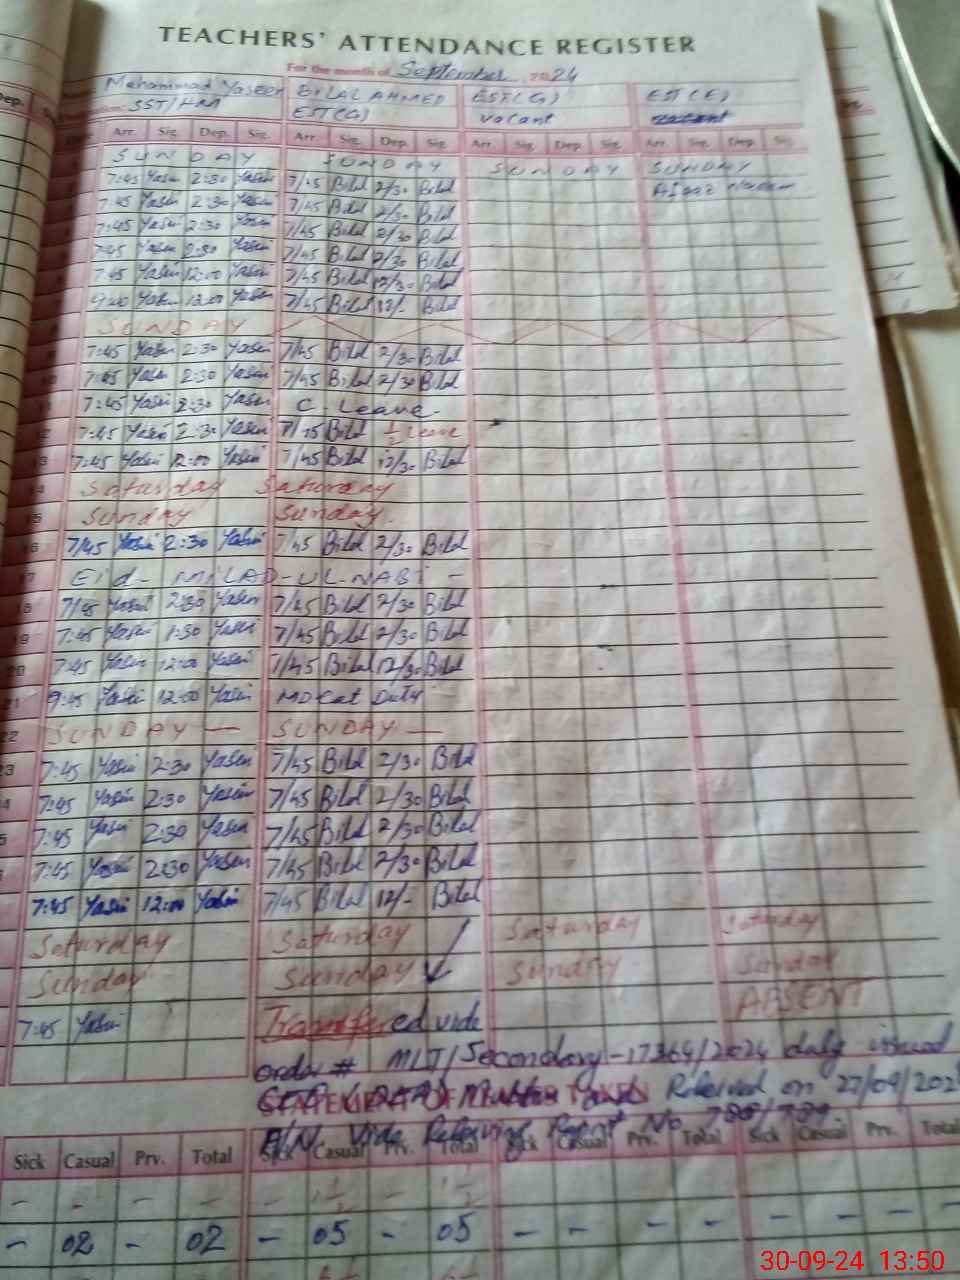 TEACHERS' ATTENDANCE REGISTER
For the month of September 2024
Mohammad Yaseen BILAL AHMED EST(G) EST(E)
SST/HM EST(G) vacant
Arr. Sig. Dep. Sig. Arr. Sig. Dep. Sig. Arr. Sig. Dep. Sig. Arr. Sig. Dep. Sig.
SUNDAY SUNDAY SUNDAY SUNDAY
7:45 Yasin 2:30 Yasin 7/45 Bilal 2/30 Bilal
7:45 Yasin 2:30 Yasin 7/45 Bilal 2/30 Bilal
7:45 Yasin 2:30 Yasin 7/45 Bilal 2/30 Bilal
7:45 Yasin 2:30 Yasin 7/45 Bilal 2/30 Bilal
7:45 Yasin 12:00 Yasin 7/45 Bilal 12/30 Bilal
Yasin Yasin 7/45 Bilal 12/- Bilal
SUNDAY
7:45 Yasin 2:30 Yasin 7/45 Bilal 2/30 Bilal
10 7:45 Yasin 2:30 Yasin 7/45 Bilal 2/30 Bilal
11 7:45 Yasin 2:30 Yasin C. Leave
12 7:45 Yasin 2:30 Yasin 7/45 Bilal ½ Leave
13 7:45 Yasin 12:00 Yasin 7/45 Bilal 12/30 Bilal
14 Saturday Saturday
15 Sunday Sunday.
16 7/45 Yasin 2:30 Yasin 7/45 Bilal 2/30 Bilal
17 Eid - MILAD-UL-NABI -
18 7/45 Yasin 2:30 Yasin 7/45 Bilal 2/30 Bilal
19 7:45 Yasin 1:30 Yasin 7/45 Bilal 2/30 Bilal
20 7:45 Yasin 12:00 Yasin 7/45 Bilal 12/30 Bilal
21 9:45 Yasin 12:00 Yasin MDCat Duty
22 SUNDAY — SUNDAY —
23 7:45 Yasin 2:30 Yasin 7/45 Bilal 2/30 Bilal
4 7:45 Yasin 2:30 Yasin 7/45 Bilal 2/30 Bilal
5 7:45 Yasin 2:30 Yasin 7/45 Bilal 2/30 Bilal
7:45 Yasin 2:30 Yasin 7/45 Bilal 2/30 Bilal
7:45 Yasin 12:00 Yasin 7/45 Bilal 12/- Bilal
Saturday Saturday Saturday Saturday
Sunday Sunday Sunday Sunday
ABSENT
7:45 Yasin Transfered vide
order # MLT/Secondary-17364/2024 dully issued
Relieved on 27/09/202
A/N. Vide Relieving Report No 788/789
Sick Casual Prv. Total Sick Casual Prv. Total Sick Casual Prv. Total Sick Casual Prv. Total
- - - - - 1½ - 1½
- 02 - 02 - 05 - 05 - - - - - - - -
30-09-24 13:50